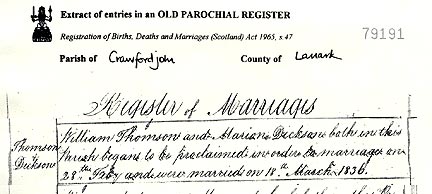 Extract of entries in an OLD PAROCHIAL REGISTER
Registration of Births, Deaths and Marriages (Scotland) Act 1965, s.47
79191
Parish of Crawfordjohn County of Lanark
Register of Marriages
Thomson & Dickson
William Thomson and Marion Dickson both in this
Parish began to be proclaimed in order to marriage on
28th Feby and were married on 18th March 1836.